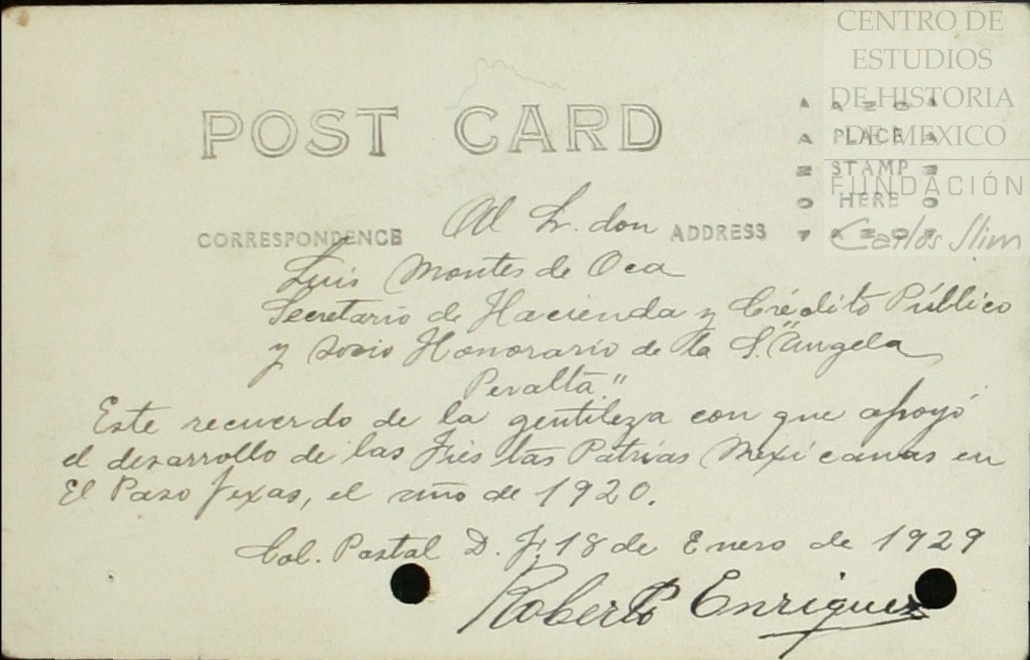 CENTRO DE
ESTUDIOS
DE HISTORIA
DE MEXICO
FUNDACIÓN
Carlos Slim
POST CARD
AZO
PLACE
STAMP
HERE
AZO
CORRESPONDENCE
ADDRESS
Al Sr. don
Luis Montes de Oca
Secretario de Hacienda y Crédito Público
y socio Honorario de la S. "Angela
Peralta"
Este recuerdo de la gentileza con que apoyó
el desarrollo de las Fiestas Patrias Mexicanas en
El Paso Texas, el año de 1920.
Col. Postal D. F. 18 de Enero de 1929
Roberto Enriquez